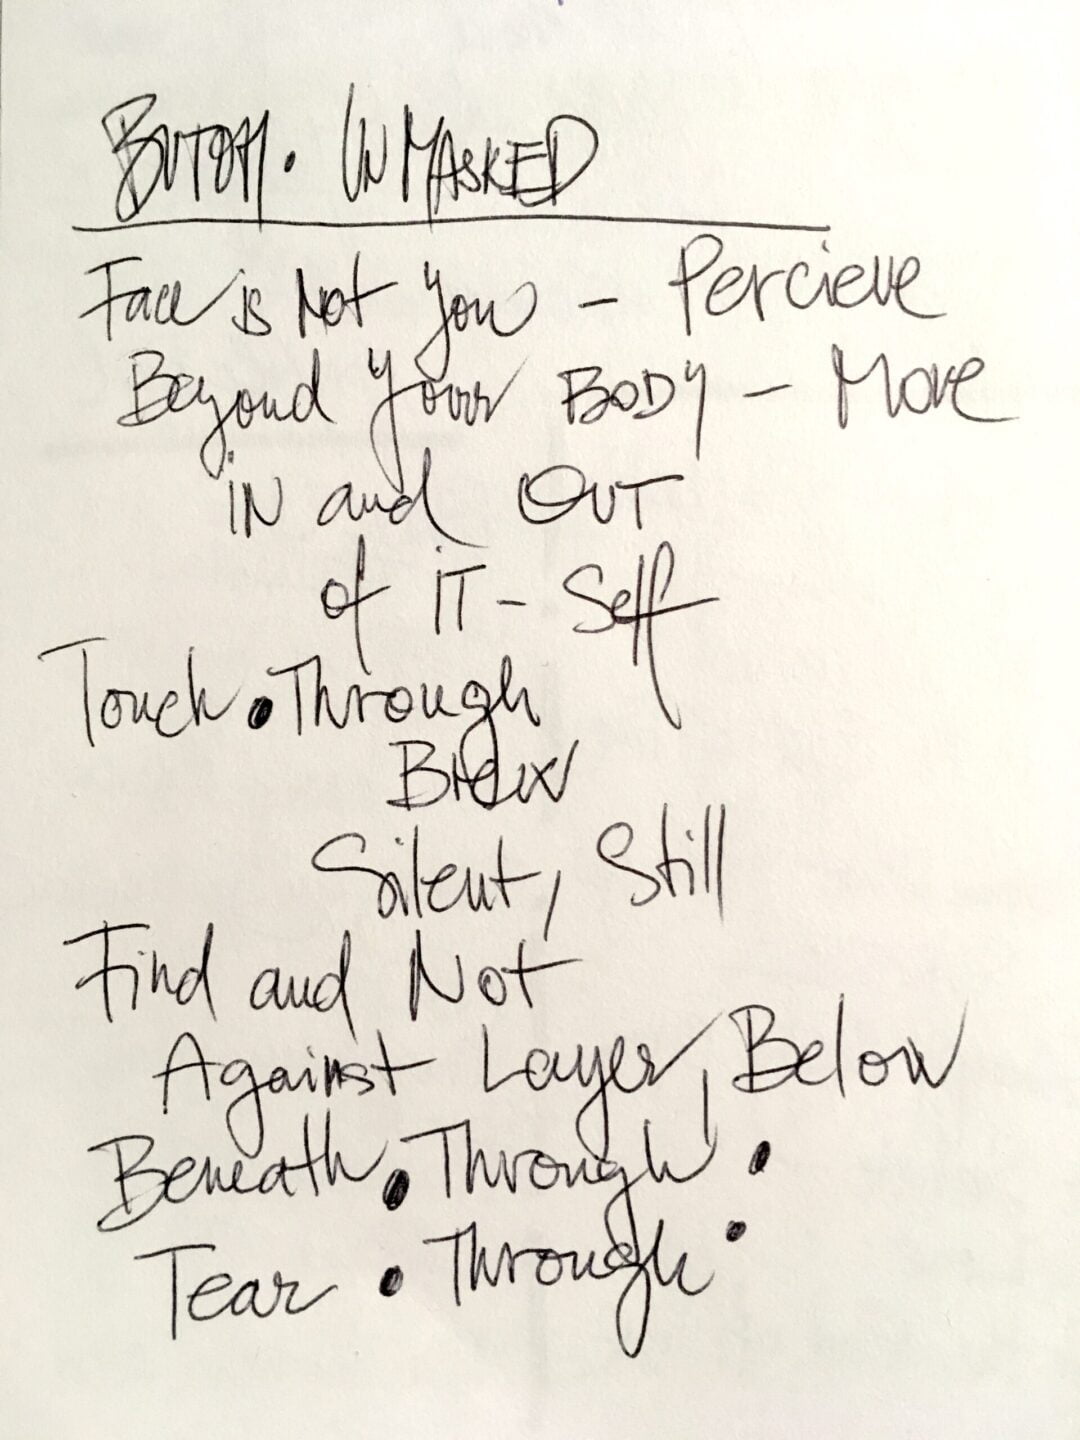 BUTOH. UNMASKED
Face is Not You - Percieve
Beyond Your BODY - Move
IN and OUT
of IT - Self
Touch • Through
Silent, Still
Find and Not
Against Layer, Below
Beneath • Through •
Tear • Through •